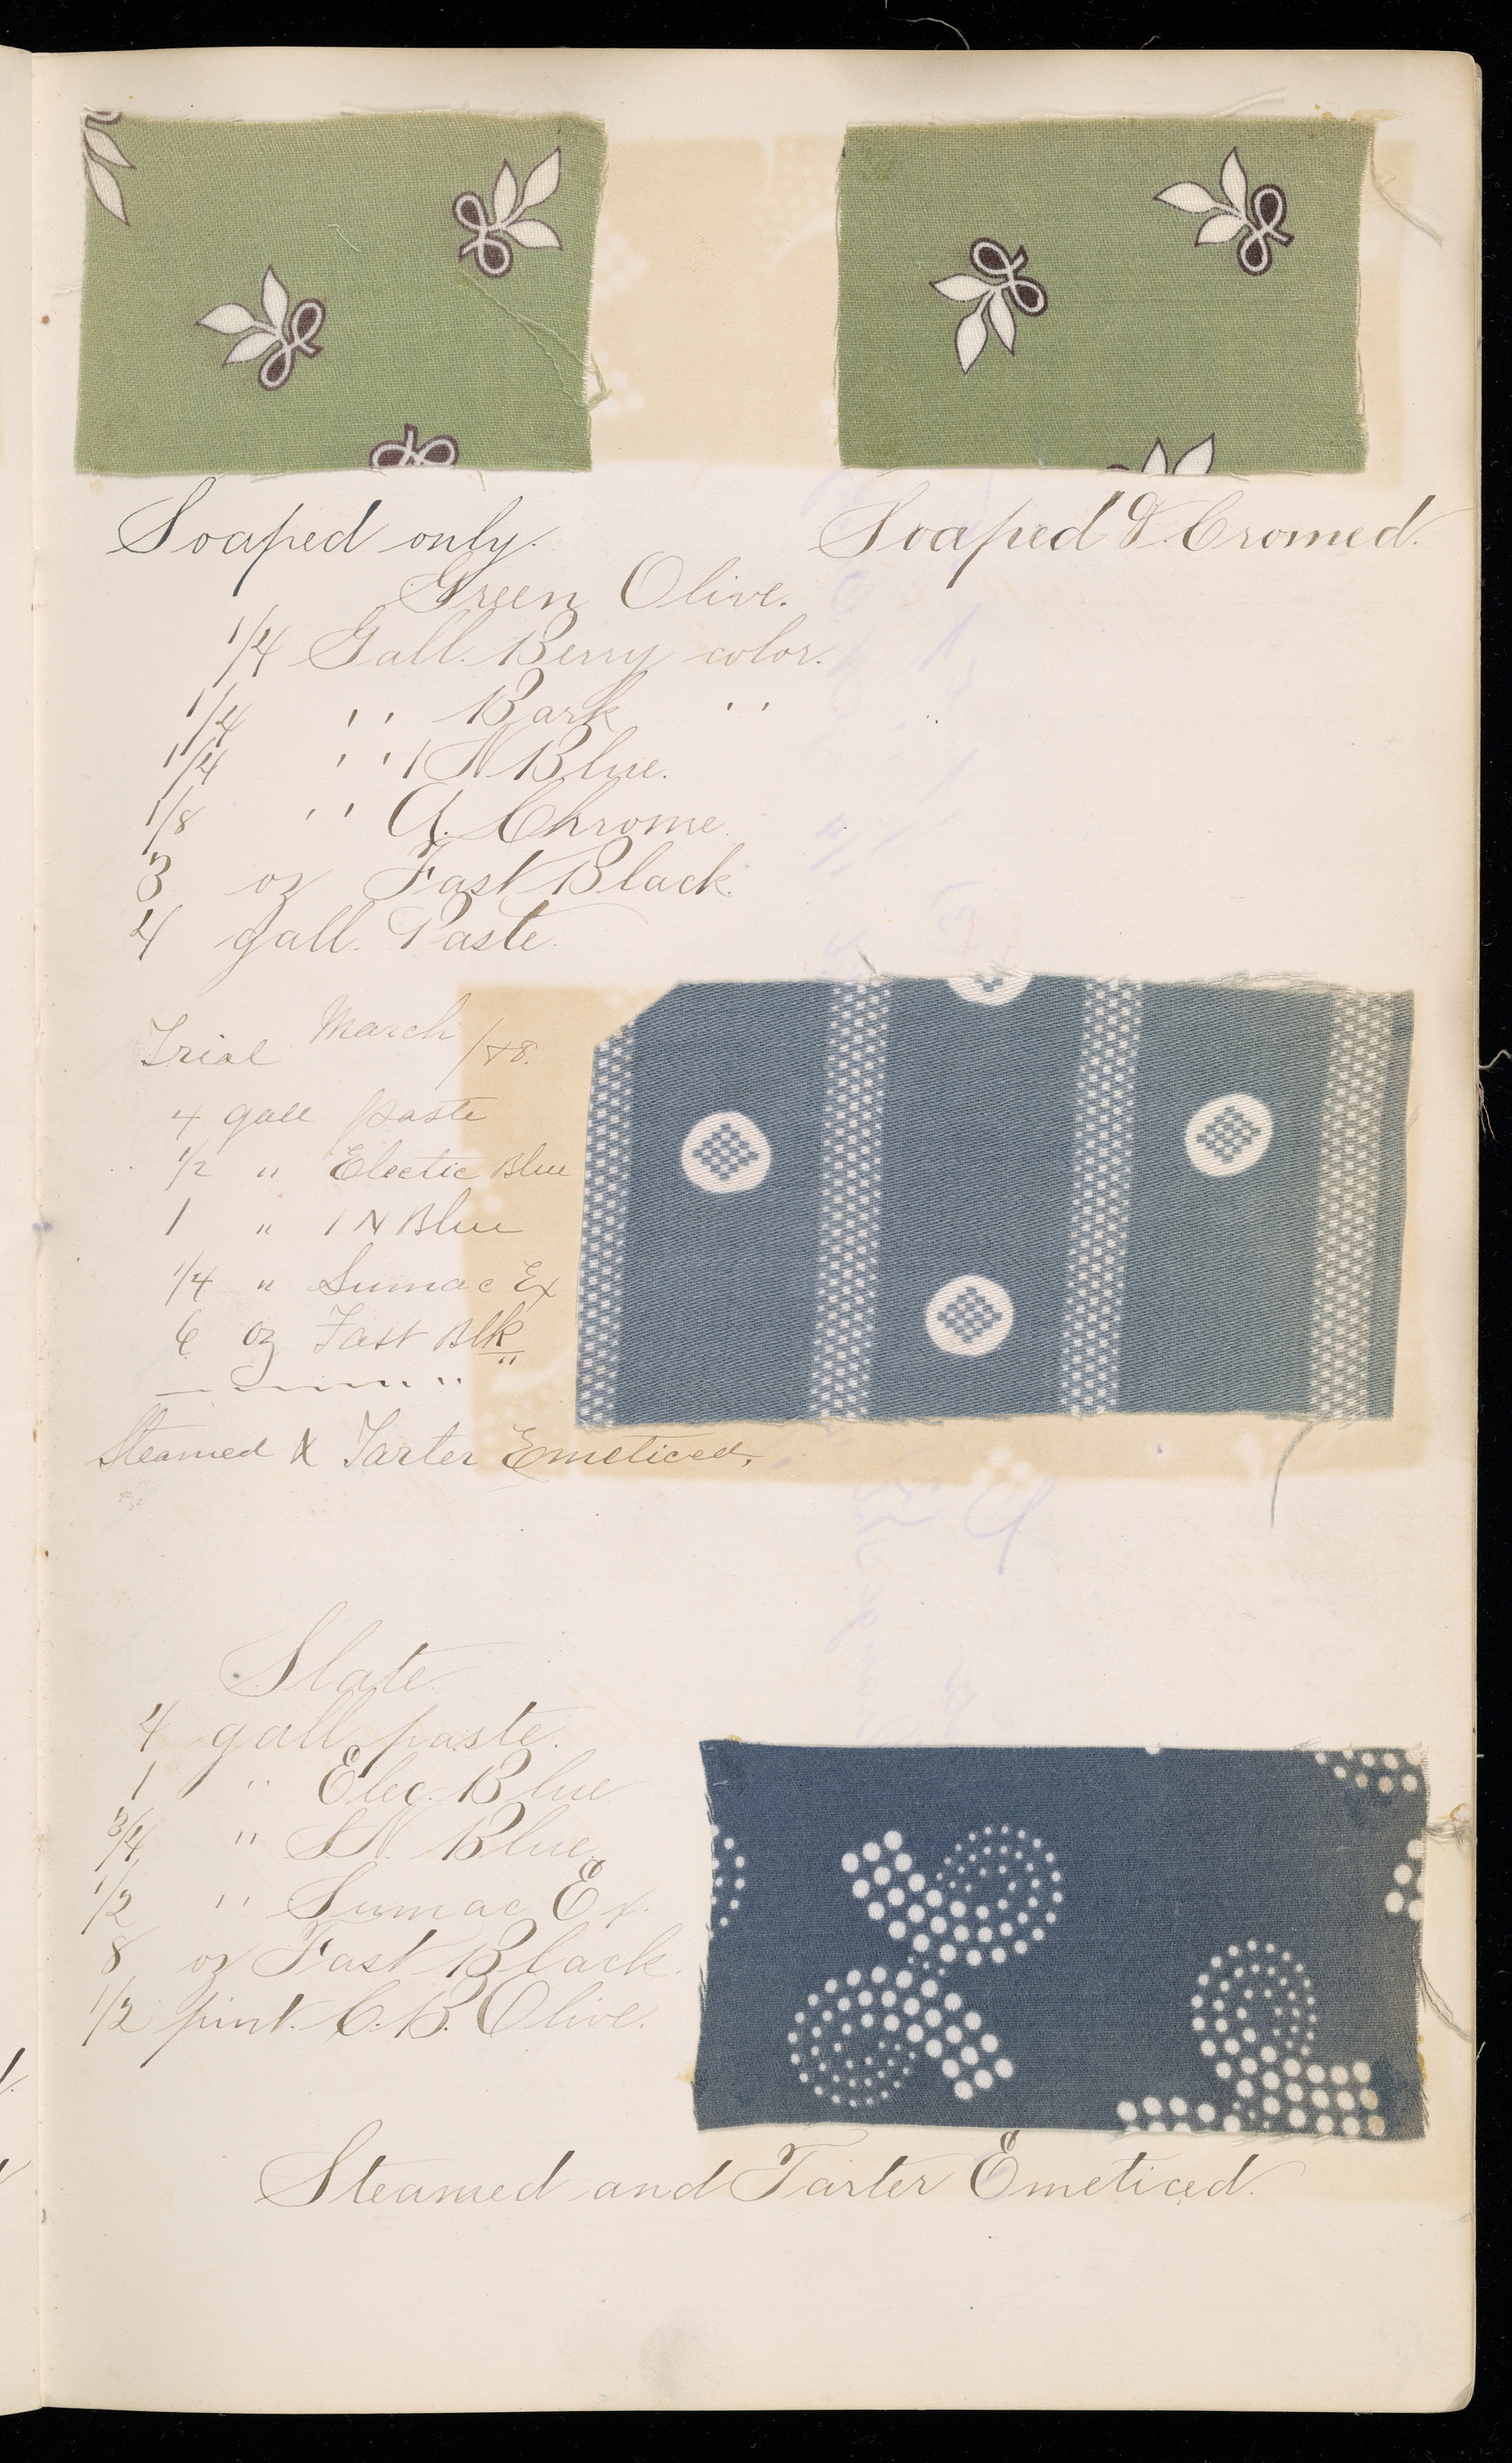 Soaped only.
Soaped & Cromed.
Green Olive.
1/4 Gall. Berry color.
1/4 '' Bark ''
1/4 '' 1 N Blue.
1/8 '' A. Chrome
3 oz Fast Black.
4 gall. Paste.
Trial March /88.
4 gall paste
1/2 " Electic Blue
1 " 1 N Blue
1/4 " Sumac Ex
6 oz Fast Blk
Steamed & Tarter Emeticed.
Slate
4 gall paste.
1 " Elec. Blue
3/4 " S N. Blue
1/2 '' Sumac Ex.
8 oz Fast Black.
1/2 pint. C. B. Olive.
Steamed and Tarter Emeticed.